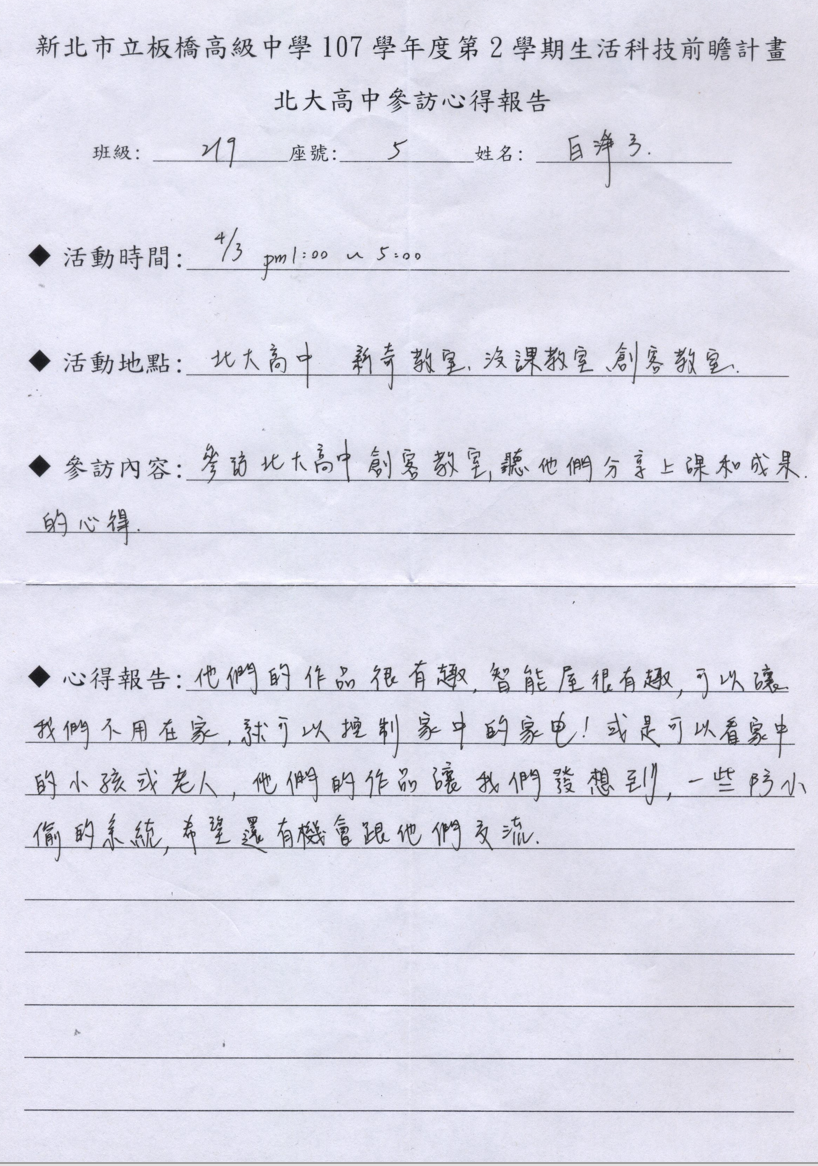 新北市立板橋高級中學 107 學年度第 2 學期生活科技前瞻計畫
北大高中參訪心得報告
班級: 219 座號: 5 姓名: 白淨
◆ 活動時間: 4/3 pm 1:00 ~ 5:00
◆ 活動地點: 北大高中 新奇教室、沒課教室、創客教室.
◆ 參訪內容: 參訪北大高中創客教室,聽他們分享上課和成果
的心得.
◆ 心得報告: 他們的作品很有趣,智能屋很有趣,可以讓
我們不用在家,就可以控制家中的家电!或是可以看家中
的小孩或老人,他們的作品讓我們發想到,一些防小
偷的系統,希望還有機會跟他們交流.